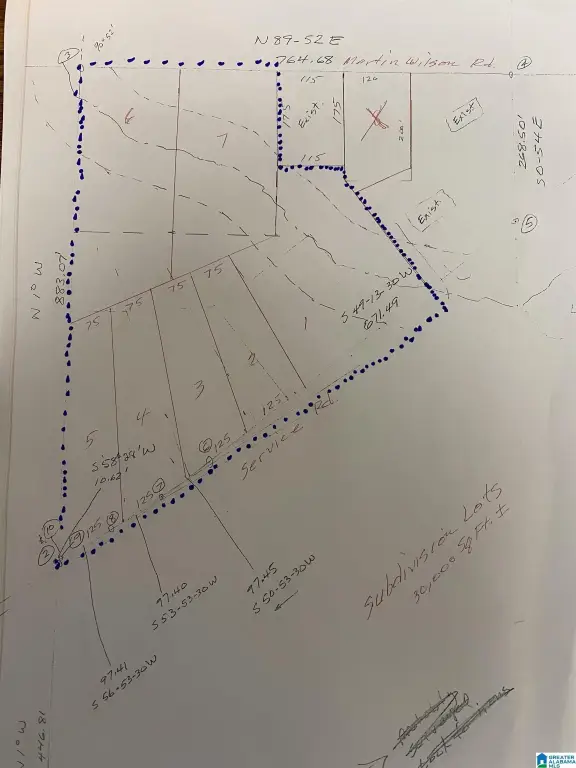 N 89-52 E
764.68 Martin Wilson Rd.
3
90°52'
4
115
120
Exist.
175
175
Exist
6
7
115
268.50'
S 0-54 E
5
Exist
N 1° W
883.07'
S 49-13-30 W
671.49
75
75
75
75
1
2
3
4
5
125
125
125
125
Service Rd.
6
7
8
9
10
2
10.62'
97.45
S 50-53-30 W
97.40
S 53-53-30 W
97.41
S 56-53-30 W
Subdivision Lots
30,000 Sq Ft. ±
N 1° W
446.81
GREATER
ALABAMA
MLS